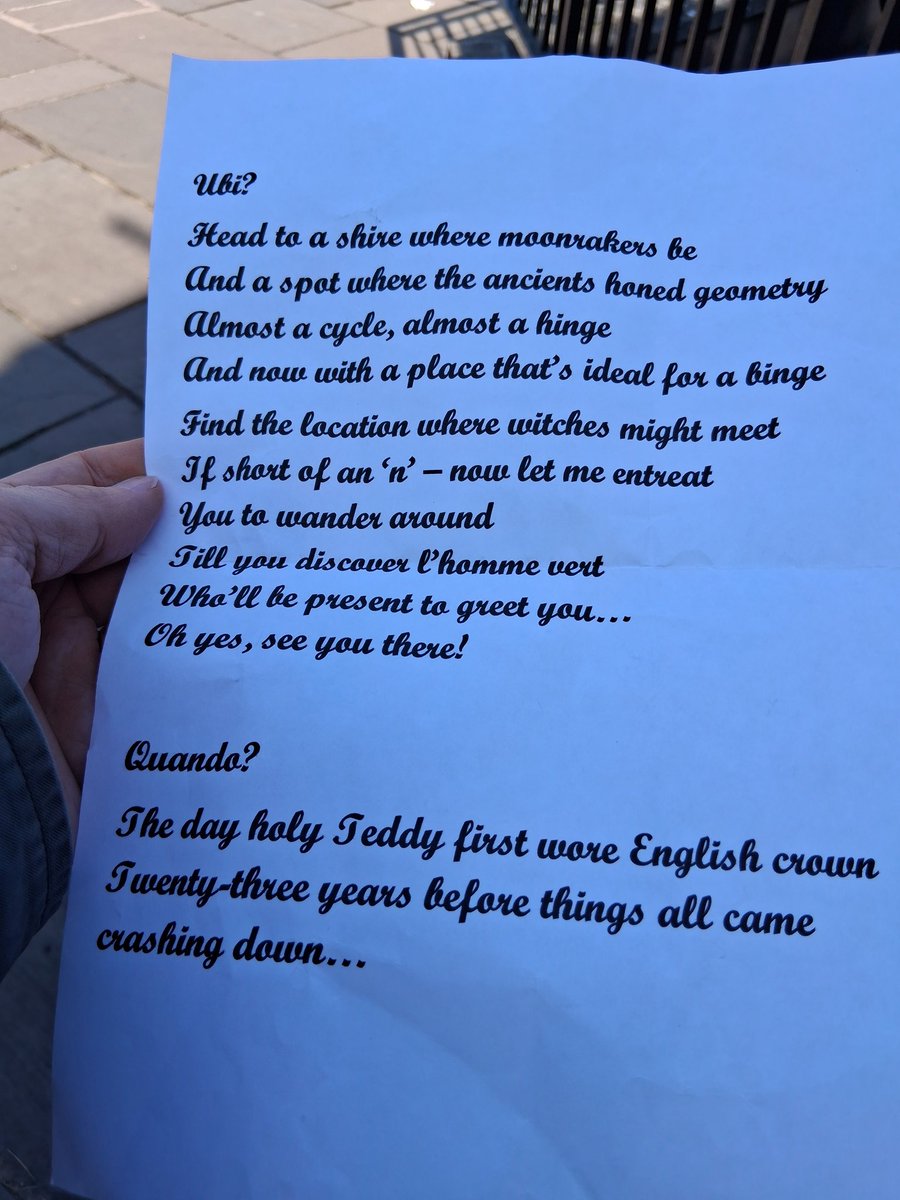 Ubi?
Head to a shire where moonrakers be
And a spot where the ancients honed geometry
Almost a cycle, almost a hinge
And now with a place that's ideal for a binge
Find the location where witches might meet
If short of an 'n' – now let me entreat
You to wander around
Till you discover l'homme vert
Who'll be present to greet you...
Oh yes, see you there!
Quando?
The day holy Teddy first wore English crown
Twenty-three years before things all came
crashing down...